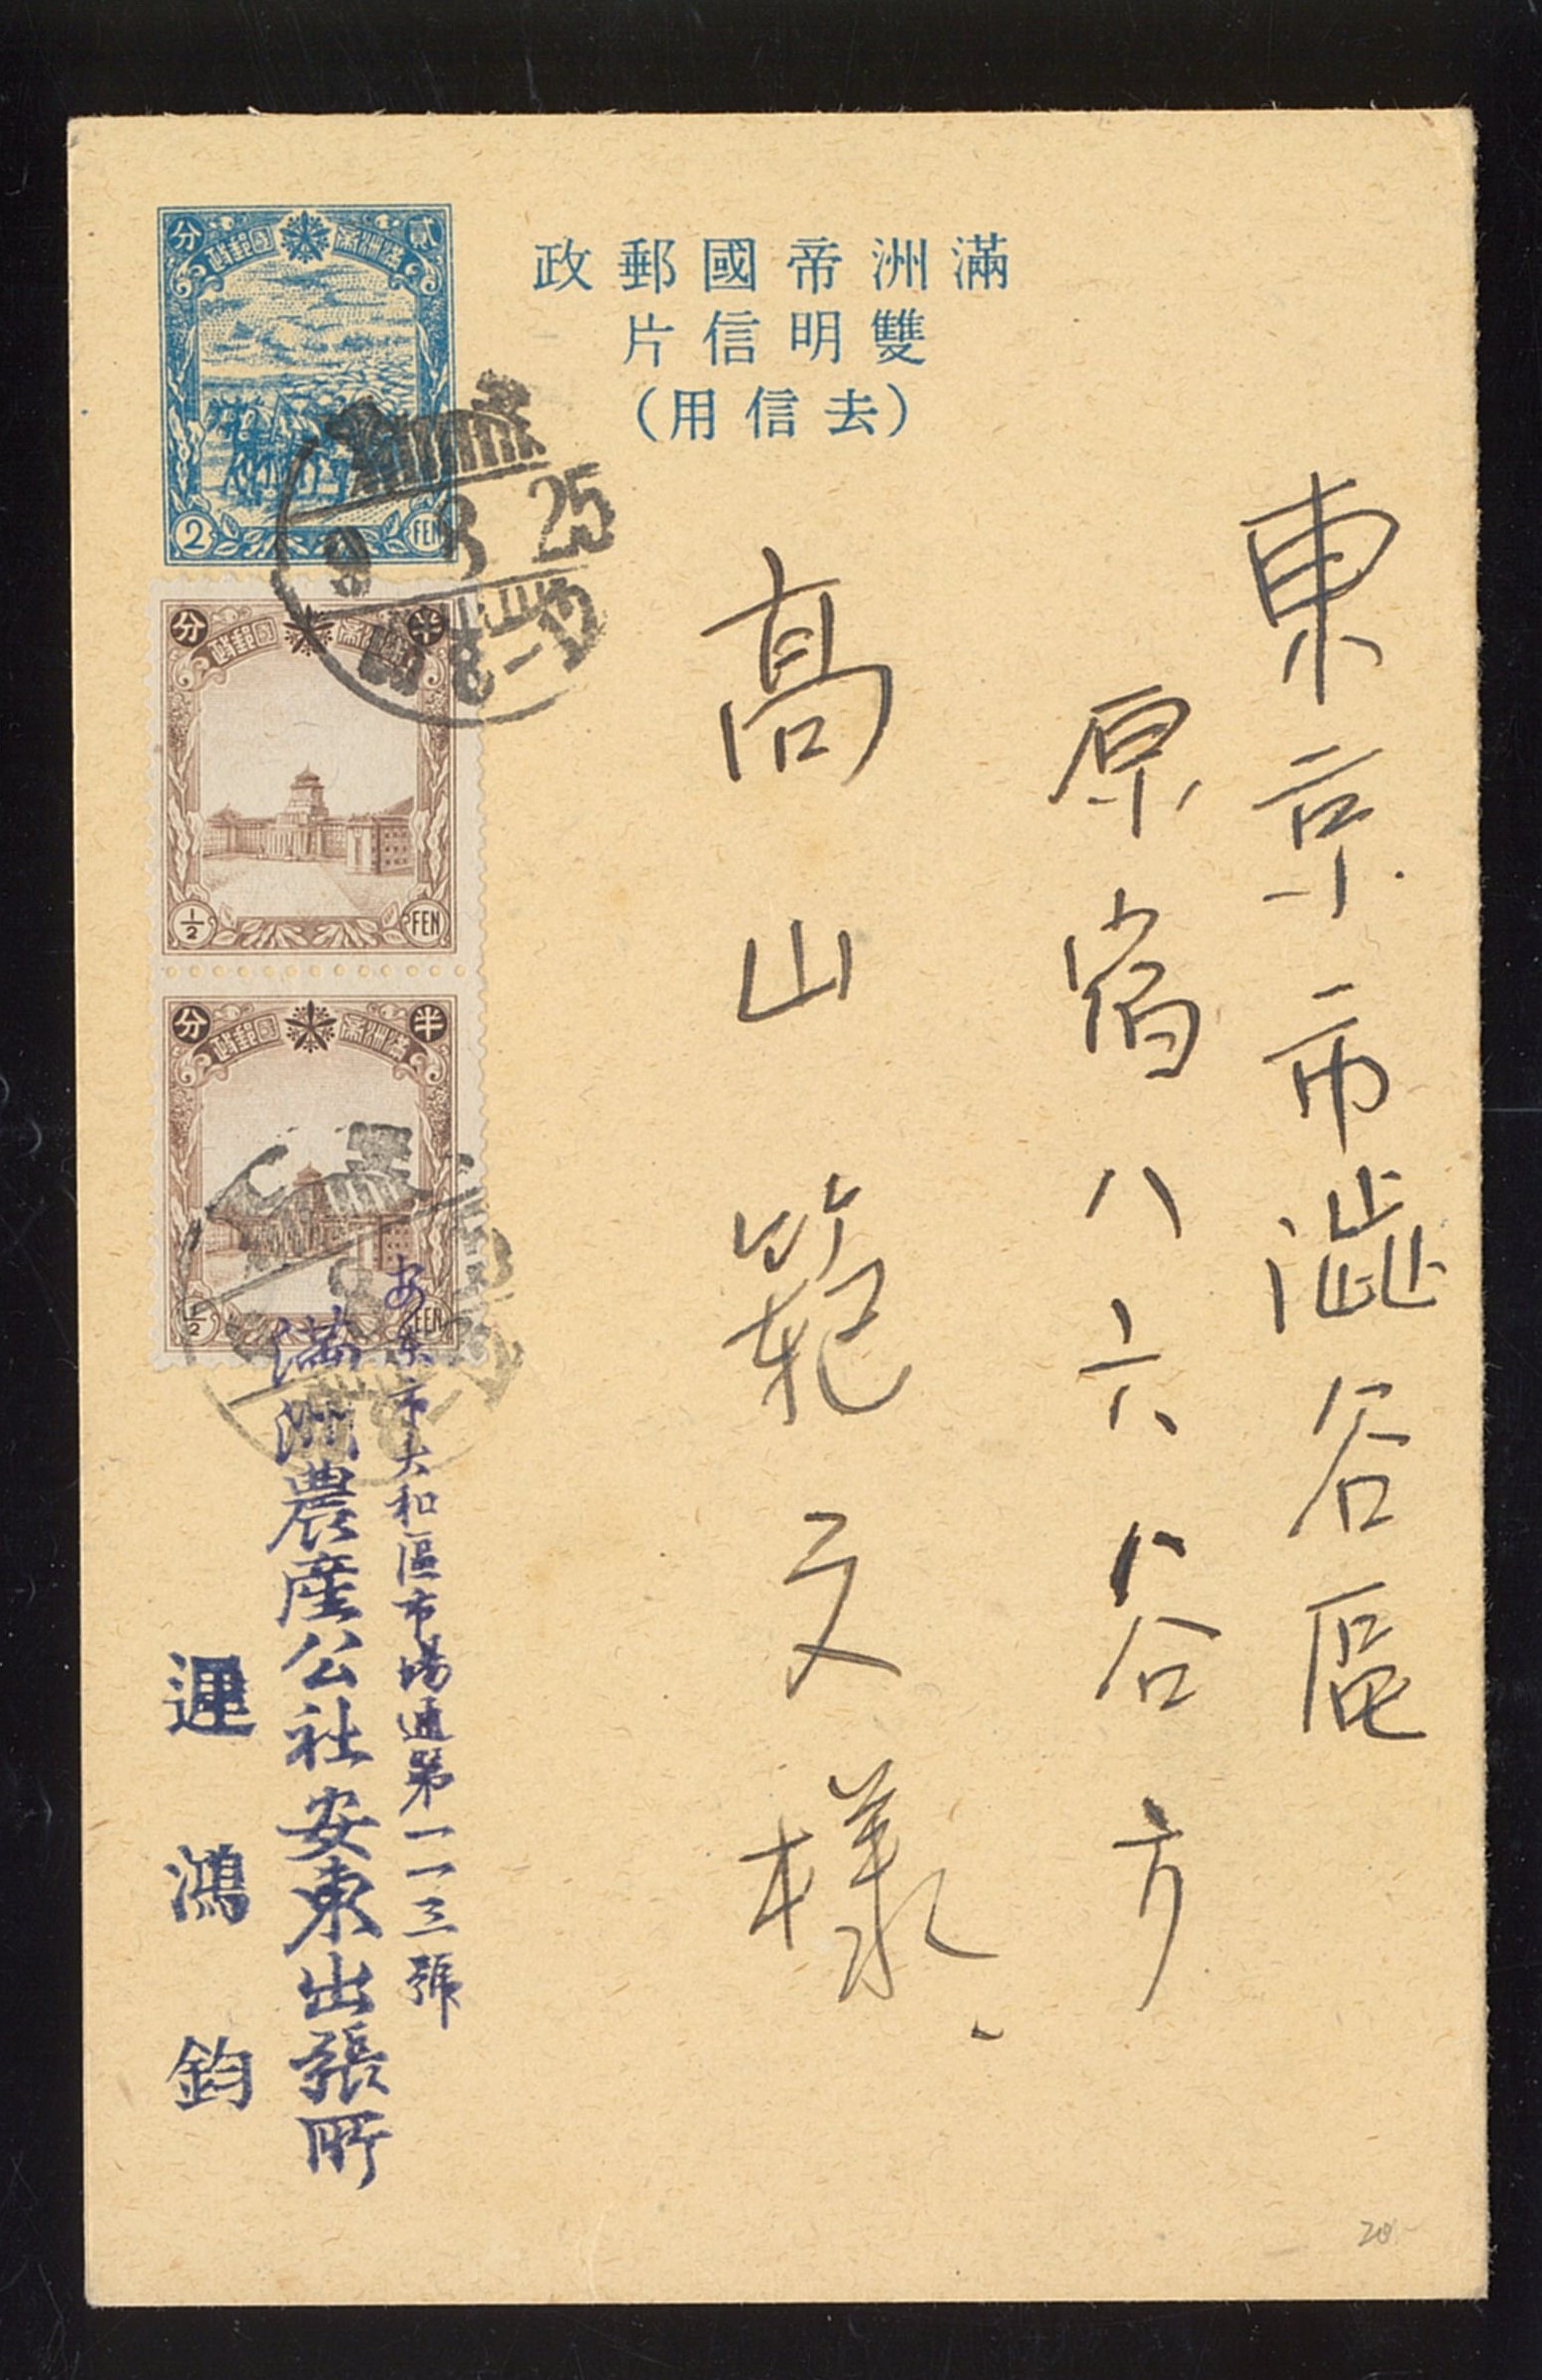 滿洲帝國郵政
雙明信片
（去信用）
東京市澁谷區
原宿八六六谷方
高山範文様
貳分
滿洲帝國郵政
2 FEN
9 3 25
8-12
半分
滿洲帝國郵政
½ FEN
半分
滿洲帝國郵政
½ FEN
安东市大和區市場通第一一三號
滿洲農產公社安東出張所
遅鴻鈞
20-